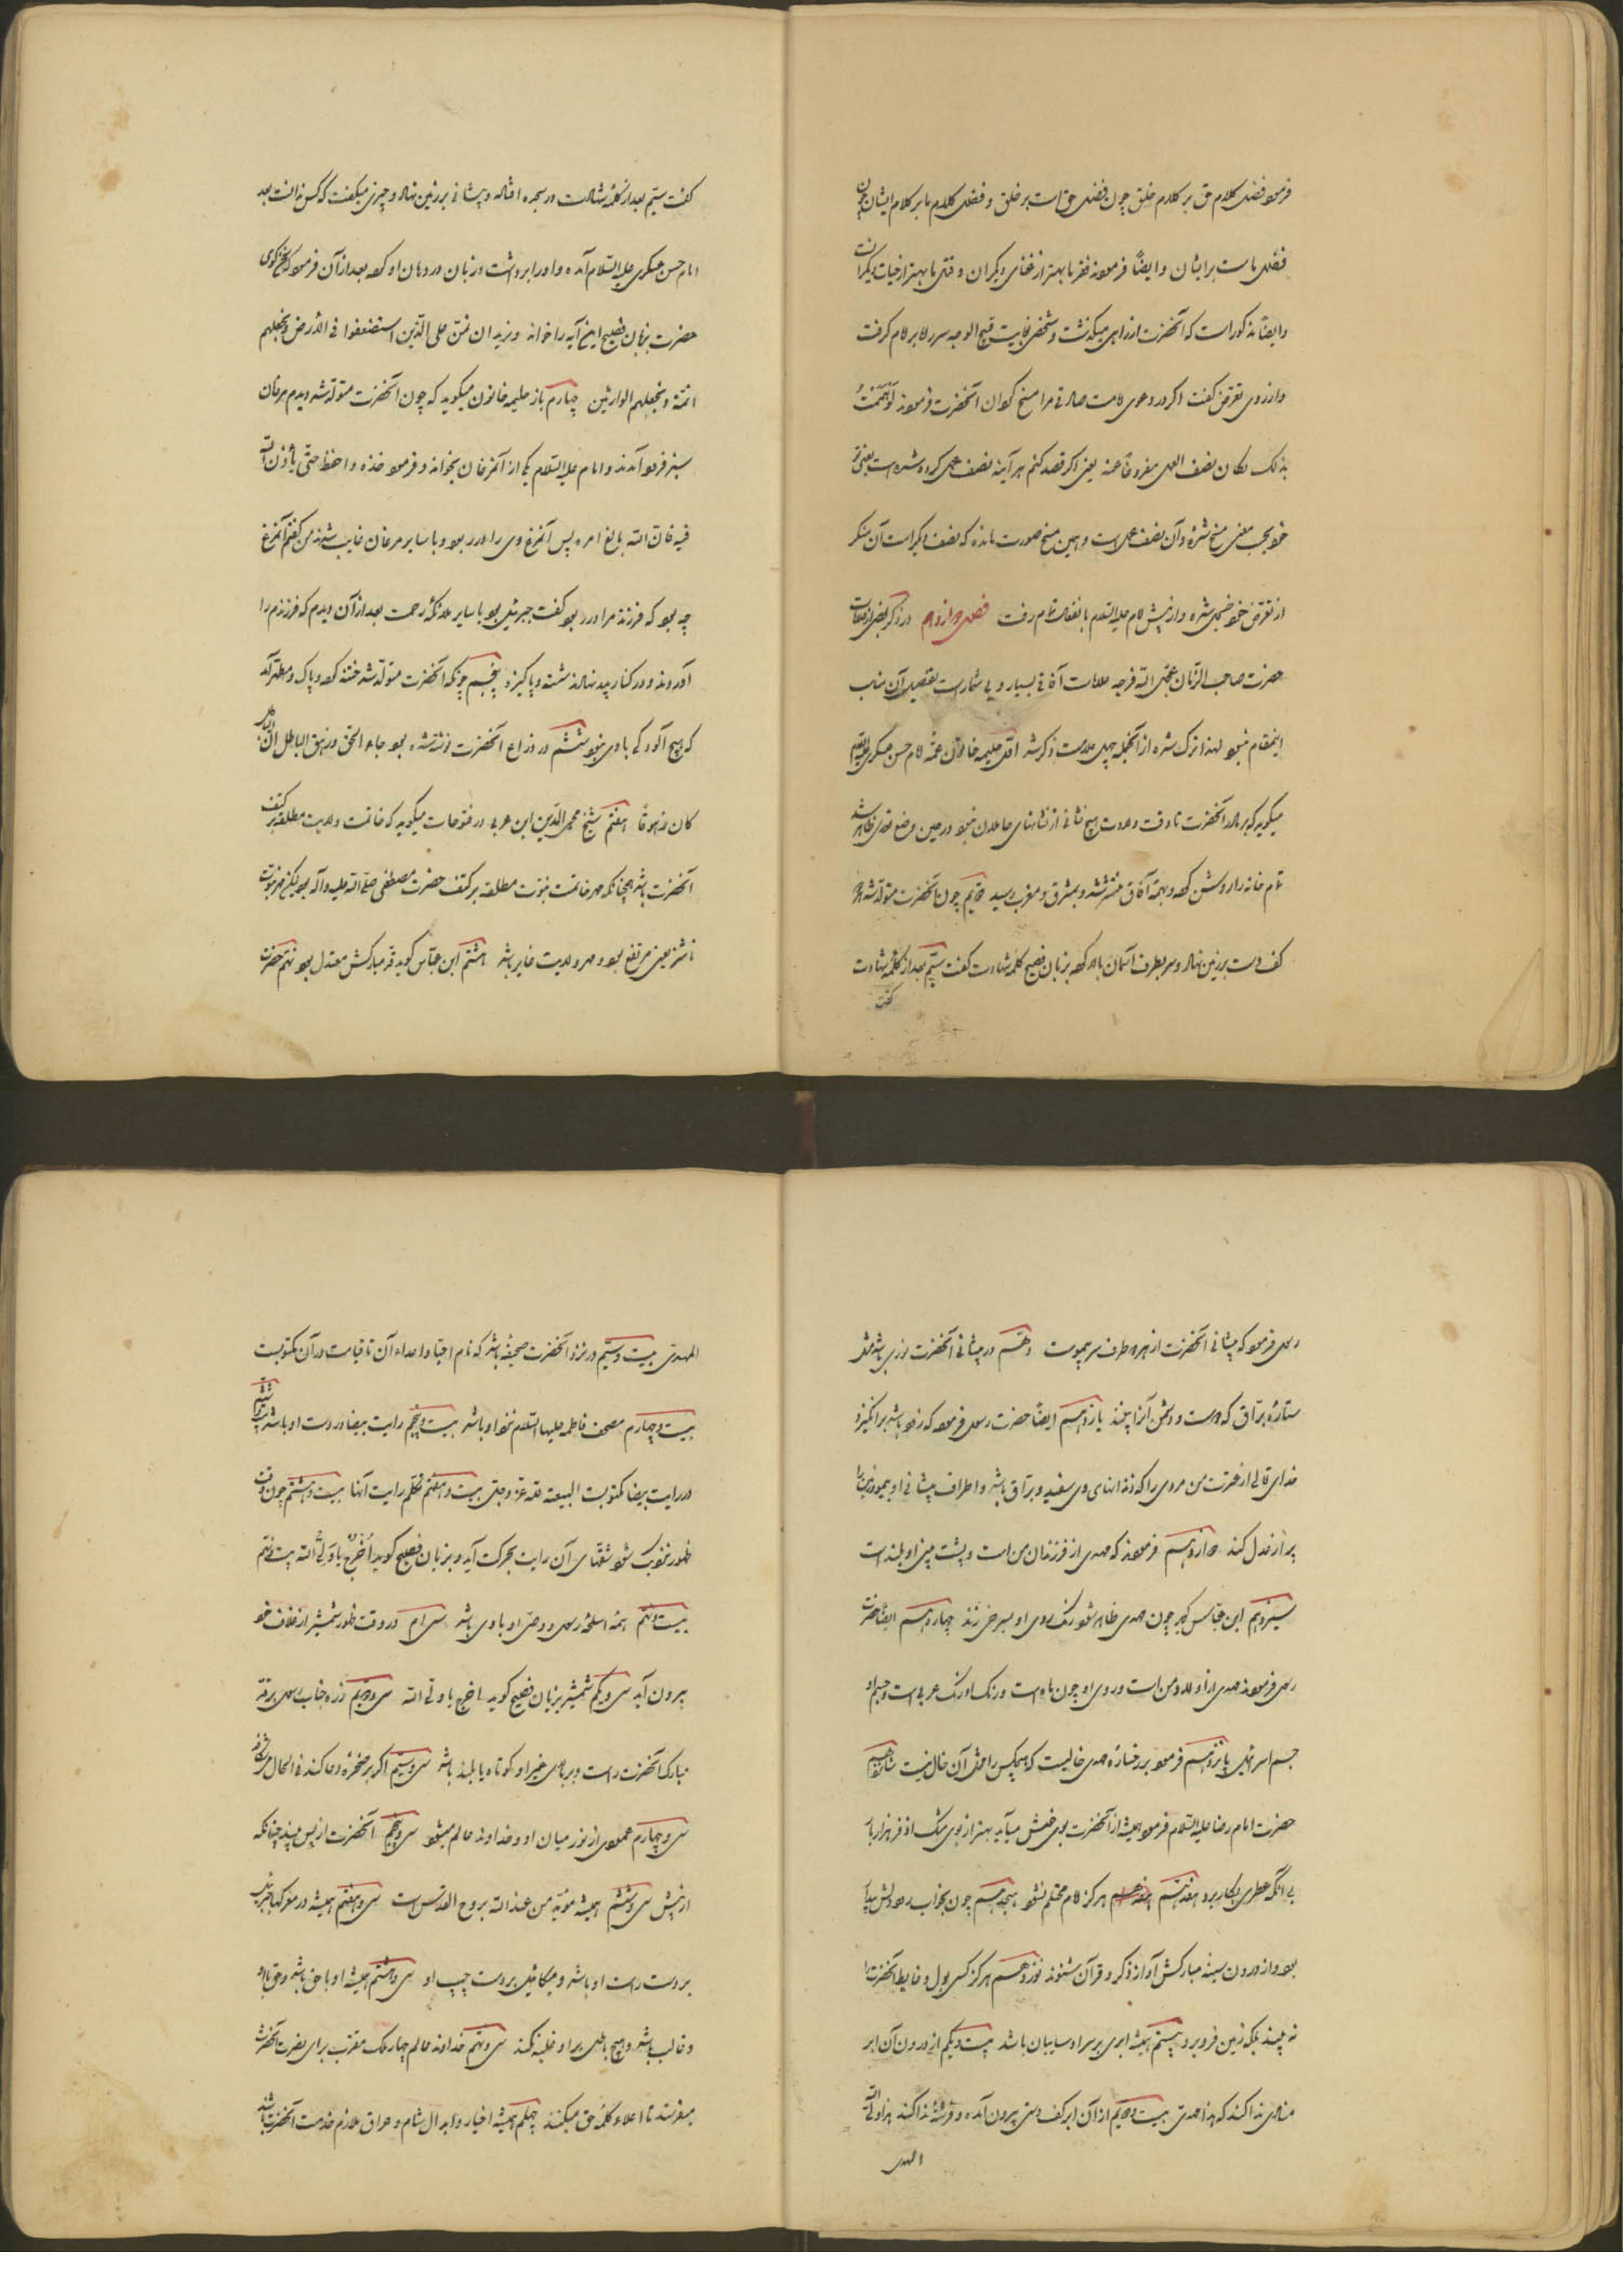 فرموده فضل کلام حق بر کلام خلق چون فضل حق است بر خلق و فضل کلام ما بر کلام ایشان چون
فضل ماست بر ایشان و ایضاً فرموده فقر ما بهتر از غنای دیگران و قتل ما بهتر از حیات دیگرانست
و ایضاً مذکور است که آنحضرت از راهی میگذشت و شخص بغایت قبیح الوجه سر راه بر امام گرفت
و از روی تعرض گفت اگر در دعوی امامت صادقی مرا مسخ گردان آنحضرت فرمودند لو هممت
بذلک لکان نصف العمل مفروغاً عنه یعنی اگر قصد کنم هر آینه نصف عمل کرده شده است یعنی تو
خود بحسب معنی مسخ شدهٔ و آن نصف عمل است و همین مسخ صورت مانده که نصف دیگر است آن منکر
از تعرض خود خجل شده و از پیش امام علیه السلام بانفعال تمام رفت فصل دوازدهم در ذکر بعضی از علامات
حضرت صاحب الزمان عجل الله فرجه علامات آفاقی بسیار و بی شمار است تفصیل آن مناسب
اینمقام نبود لهذا ترک شده از آنجمله چهل علامت ذکر شد اول حلیمه خاتون عمهٔ امام حسن عسکری علیه السلام
میگوید که بر مادر آنحضرت تا وقت ولادت هیچ نشانی از نشانهای حاملان نبود در حین وضع نوری ظاهر شد
تمام خانه را روشن کرد و بهمه آفاق منتشر شد و بمشرق و مغرب رسید دویم چون آنحضرت متولد شد هر دو
کف دست بر زمین نهاد و سر بطرف آسمان بالا کرده بزبان فصیح کلمه شهادت گفت سیم بعد از کلمه شهادت
گفت
گفت سیم بعد از کلمهٔ شهادت در سجده افتاد و پیشانی بر زمین نهاد و چیزی میگفت که کس ندانست بعد
امام حسن عسکری علیه السلام آمده و او را برداشت و زبان در دهان او کرد بعد از آن فرمود که سخن گوی
حضرت بزبان فصیح این آیه را خواند و نرید ان نمن علی الذین استضعفوا فی الارض و نجعلهم
ائمة و نجعلهم الوارثین چهارم باز حلیمه خاتون میگوید که چون آنحضرت متولد شد دیدم مرغان
سبز فرود آمدند و امام علیه السلام یکی از آنمرغان بخواند و فرمود خذه و احفظ حتی یأذن الله
فیه فان الله بالغ امره پس آنمرغ وی را در ربود و با سایر مرغان غایب شدند من گفتم آنمرغ
چه بود که فرزند مرا در ربود گفت جبرئیل بود با سایر ملائکهٔ رحمت بعد از آن دیدم که فرزندم را
آوردند و در کنار پدر نهادند شسته و پاکیزه پنجم چونکه آنحضرت متولد شد ختنه کرده و پاک و مطهر آمد
که هیچ آلودگی با وی نبود ششم در ذراع آنحضرت نوشته شده بود جاء الحق و زهق الباطل ان الباطل
کان زهوقاً هفتم شیخ محی الدین ابن عربی در فتوحات میگوید که خاتمت ولایت مطلقه بر کتف
آنحضرت باشد همچنانکه مهر خاتمت نبوت مطلقه بر کتف حضرت مصطفی صلی الله علیه و آله بود لیکن مهر نبوت
ناشز یعنی مرتفع بود و مهر ولایت غایر باشد هشتم ابن عباس گوید قد مبارکش معتدل بود نهم حضرت
رسول فرمود که پیشانی آنحضرت از هر دو طرف سر بی موست دهم در پیشانی آنحضرت نوری باشد مثل
ستارهٔ براق که دوست و دشمن آنرا بینند یازدهم ایضاً حضرت رسول فرمود که زود باشد بر انگیزد
خدای تعالی از عترت من مردی را که دندانهای وی سفید و براق باشد و اطراف پیشانی او بیمو زمین را
پر از عدل کند دوازدهم فرمودند که مهدی از فرزندان من است و پشت بینی او بلند است
سیزدهم ابن عباس گوید چون مهدی ظاهر شود رنگ روی او بسرخی زند چهاردهم ایضاً حضرت
رسول فرمودند مهدی از اولاد من است و روی او چون ماه است و رنگ او رنگ عربی است و جسم او
جسم اسرائیلی پانزدهم فرمود بر رخسارهٔ مهدی خالیست که هیچکس را مثل آن خال نیست شانزدهم
حضرت امام رضا علیه السلام فرمود همیشه از آنحضرت بوی خوش میآید بهتر از بوی مشک اذفر هزار بار
بی آنکه عطری بکار برد هفدهم هرگز امام محتلم نشود هیجدهم چون بخواب رود دلش بیدار
بود و از درون سینه مبارکش آواز ذکر و قرآن شنوند نوزدهم هرگز کسی بول و غایط آنحضرت را
نه بیند بلکه زمین فرو برد بیستم همیشه ابری بر سر او سایبان باشد بیست و یکم از درون آن ابر
منادی ندا کند که هذا مهدی بیست و دویم از آن ابر کف دستی بیرون آمده و فرشتهٔ ندا کند هذا ولی الله
المهدی
المهدی بیست و سیم در نزد آنحضرت صحیفه باشد که نام احبا و اعداء آن تا قیامت در آن مکتوبست
بیست و چهارم مصحف فاطمه علیها السلام نزد او باشد بیست و پنجم رایت بیضا در دست او باشد بیست و ششم
در رایت بیضا مکتوبست البیعة لله عز و جل بیست و هفتم تکلم رایت آنها بیست و هشتم چون وقت
ظهور نزدیک شود شقهای آن رایت بحرکت آید و بزبان فصیح گوید اخرج یا ولی الله بیست و نهم
بیست و نهم همهٔ اسلحهٔ رسول و وصی او با وی باشد سی ام در وقت ظهور شمشیر از غلاف خود
بیرون آید سی و یکم شمشیر بزبان فصیح گوید اخرج یا ولی الله سی و دویم زره جناب رسول بر قد
مبارک آنحضرت راست و بر بالای غیر او کوتاه یا بلند باشد سی و سیم اگر بر صخره دعا کند فی الحال
سی و چهارم عمودی از نور میان او و خداوند عالم میشود سی و پنجم آنحضرت از پس بیند چنانکه
از پیش سی و ششم همیشه مؤید من عند الله بروح القدس است سی و هفتم همیشه در معرکها جبرئیل
بر دست راست او باشد و میکائیل بر دست چپ او سی و هشتم همیشه او با حق باشد و حق با او
و غالب باشد و هیچ باطل بر او غلبه نکند سی و نهم خداوند عالم چهار ملک مقرب برای نصرت آنحضرت
میفرستد تا اعلاء کلمهٔ حق میکنند چهلم همیشه اخیار و ابدال شام و عراق ملازم خدمت آنحضرت باشند